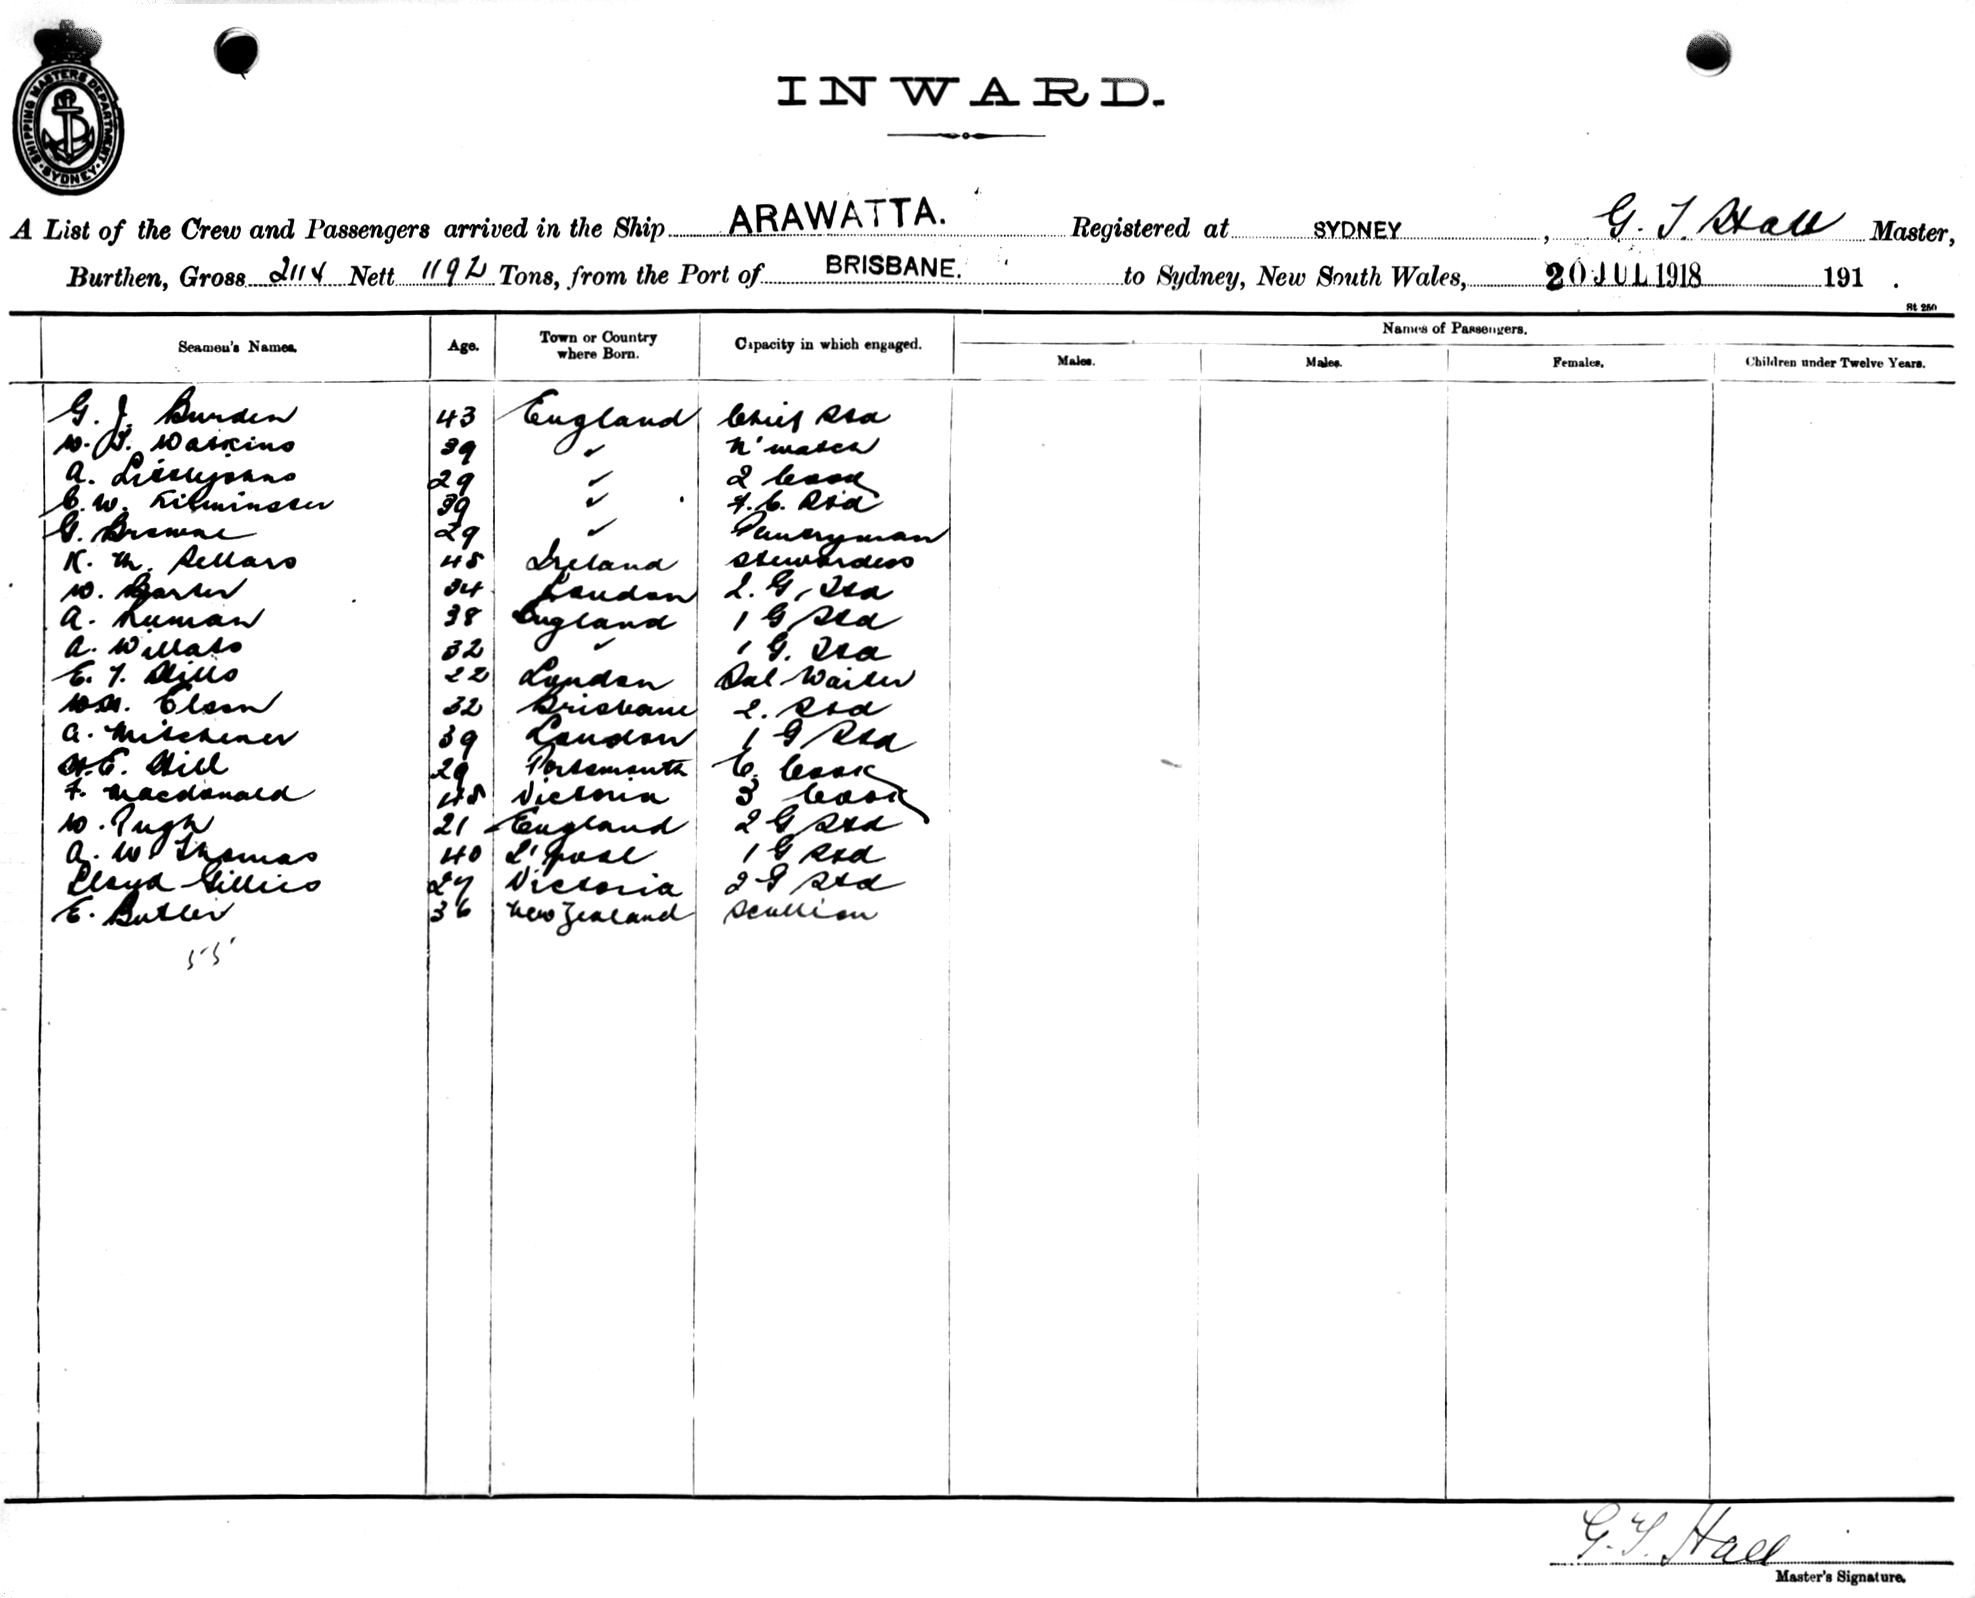 SHIPPING MASTERS DEPARTMENT. SYDNEY.
INWARD.
A List of the Crew and Passengers arrived in the Ship ARAWATTA. Registered at SYDNEY, G. T. Hall Master,
Burthen, Gross 2114 Nett 1192 Tons, from the Port of BRISBANE. to Sydney, New South Wales, 20 JUL 1918 191 .
St 250
Seamen's Names. Age. Town or Country where Born. Capacity in which engaged. Names of Passengers.
Males. Males. Females. Children under Twelve Years.
G. J. Burden 43 England Chief Std
W. J. Watkins 39 ✓ N' watch
A. Littlejohns 29 ✓ 2 Cook
C. W. Kilminster 39 ✓ F. C. Std
G. Browne 29 ✓ Pantryman
K. M. Sellars 45 Ireland Stewardess
W. Garter 34 London 2. G. Std
A. Human 38 England 1 G Std
A. Willats 32 ✓ 1 G. Std
E. T. Hills 22 London Sal Waiter
Wm. Elson 32 Brisbane 2. Std
A. Mitchener 39 London 1 G Std
H. E. Hill 29 Portsmouth C. Cook
F. Macdonald 45 Victoria 3 Cook
W. Pugh 21 England 2 G Std
A. W. Thomas 40 L'pool 1 G Std
Lloyd Gillies 27 Victoria 2 G Std
E. Butler 36 New Zealand Scullion
55
G. T. Hall
Master's Signature.